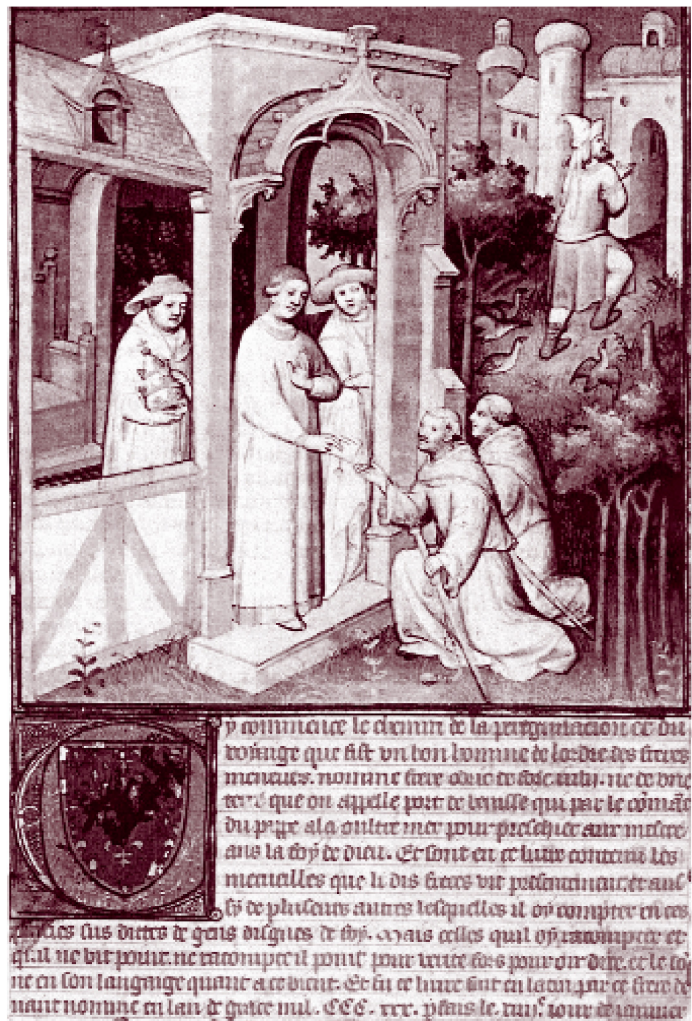 Cy commence le chemin de la peregrinacion et du
voyaige que fist vn bon homme de lordre des freres
meneurs. nomme frere de vne
terre que on appelle port de venisse qui par le cōmāt
du pappe ala oultre mer pour preschier aux mescre
ans la foy de dieu. Et sont en ce liure contenu les
merueilles que li dis freres vit presentement. et aus
sy de pluseurs autres lesquelles il oy compter en ces
parties sus dittes de gens dignes de foy. Mais celles quil oy racompter et
quil ne vit point. ne racompte il point pour verite fors pour oir dire. et le
ne en son langaige quant a ce vient. Et fu ce liure fait en latin par ce frere de
uant nomme en lan de grace mil. CCC. xxx. le. xiiii.e iour de ianuier